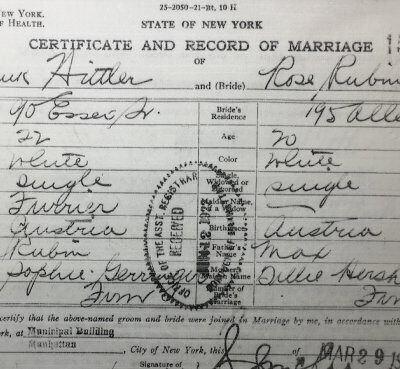 NEW YORK.
OF HEALTH.
25-2050-21-Bt, 10 H
STATE OF NEW YORK
CERTIFICATE AND RECORD OF MARRIAGE
OF
Hittler and (Bride) Rose Rubin
90 Essex St. Bride's Residence 195
22 Age 20
White Color White
Single Single, Widowed or Divorced Single
Furrier Maiden Name, if a Widow
Austria Birthplace Austria
Rubin Father's Name Max
Sophie Mother's Maiden Name Tillie
First Number of Bride's Marriage
OF THE ASST. REGISTRAR
RECEIVED
certify that the above-named groom and bride were joined in Marriage by me, in accordance with
York, at Municipal Building
Manhattan, City of New York, this MAR 29
Signature of